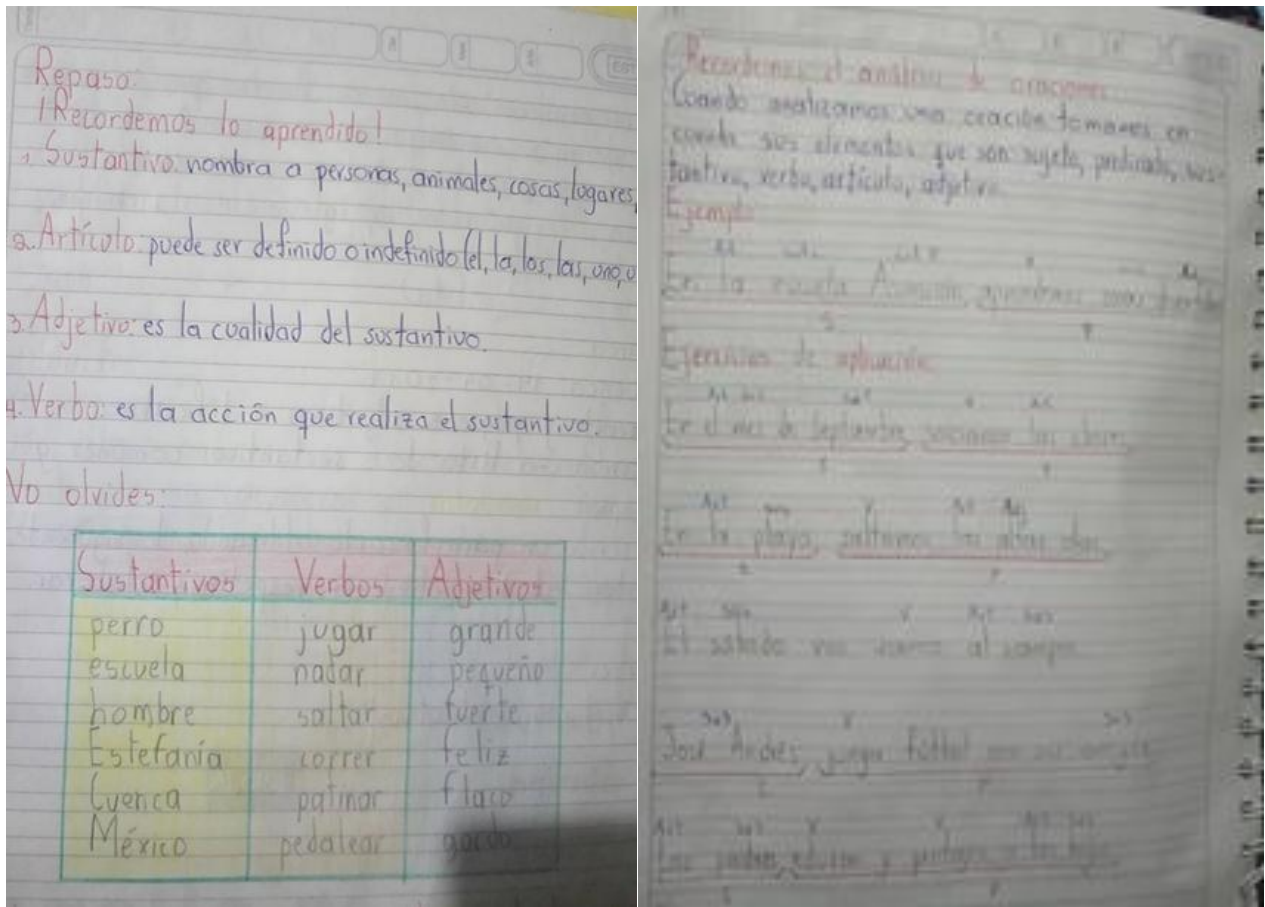 Repaso:
¡Recordemos lo aprendido!
1. Sustantivo: nombra a personas, animales, cosas, lugares,
2. Artículo: puede ser definido o indefinido (el, la, los, las, uno,
3. Adjetivo: es la cualidad del sustantivo.
4. Verbo: es la acción que realiza el sustantivo.
No olvides:
Sustantivos Verbos Adjetivos
perro jugar grande
escuela nadar pequeño
hombre saltar fuerte
Estefanía correr feliz
Cuenca patinar flaco
México pedalear gordo
Recordemos el análisis de oraciones
Cuando analizamos una oración tomamos en
cuenta sus elementos que son sujeto, predicado, sus-
tantivo, verbo, artículo, adjetivo.
Ejemplo
En la escuela
Ejercicios de aplicación
En el mes de septiembre, las clases.
En la playa, saltamos las altas olas.
El sábado nos vamos al campo
José Andrés juega fútbol con
Los padres educan y protegen a los hijos.